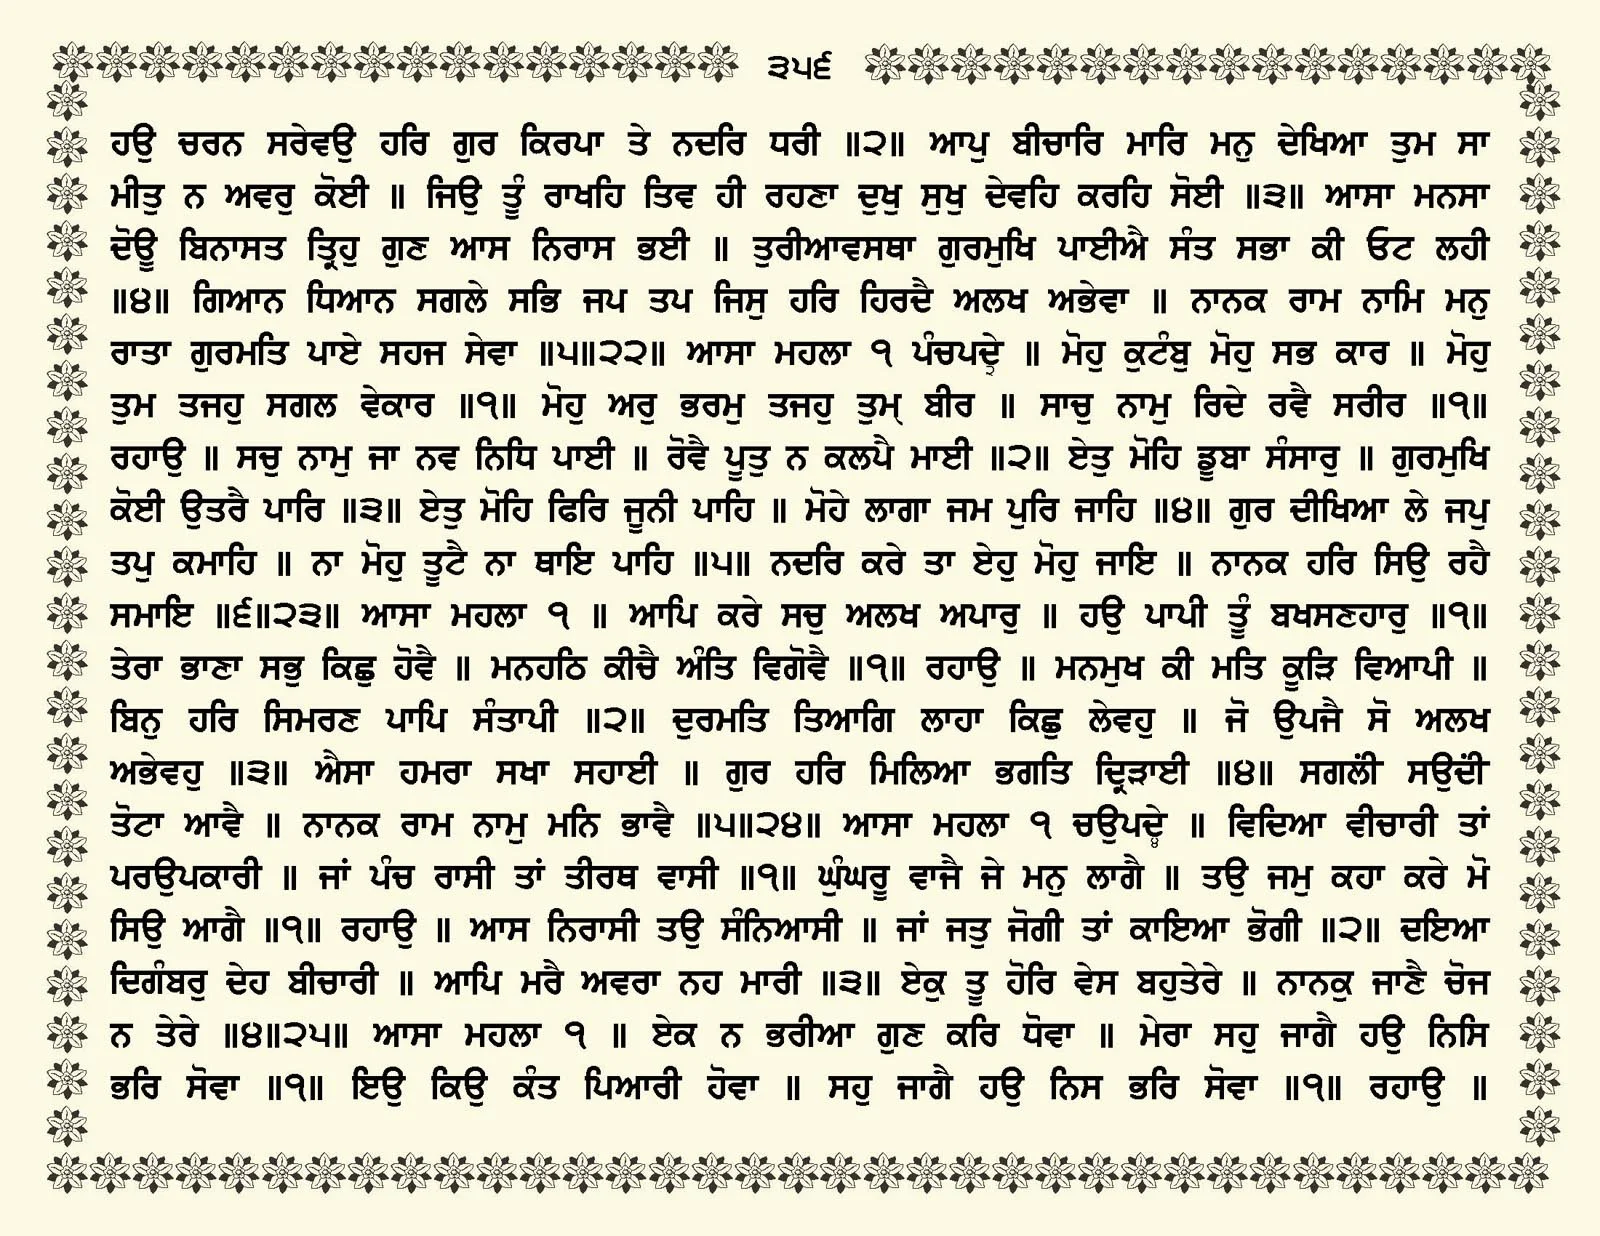 ੩੫੬
ਹਉ ਚਰਨ ਸਰੇਵਉ ਹਰਿ ਗੁਰ ਕਿਰਪਾ ਤੇ ਨਦਰਿ ਧਰੀ ॥੨॥ ਆਪੁ ਬੀਚਾਰਿ ਮਾਰਿ ਮਨੁ ਦੇਖਿਆ ਤੁਮ ਸਾ
ਮੀਤੁ ਨ ਅਵਰੁ ਕੋਈ ॥ ਜਿਉ ਤੂੰ ਰਾਖਹਿ ਤਿਵ ਹੀ ਰਹਣਾ ਦੁਖੁ ਸੁਖੁ ਦੇਵਹਿ ਕਰਹਿ ਸੋਈ ॥੩॥ ਆਸਾ ਮਨਸਾ
ਦੋਊ ਬਿਨਾਸਤ ਤ੍ਰਿਹੁ ਗੁਣ ਆਸ ਨਿਰਾਸ ਭਈ ॥ ਤੁਰੀਆਵਸਥਾ ਗੁਰਮੁਖਿ ਪਾਈਐ ਸੰਤ ਸਭਾ ਕੀ ਓਟ ਲਹੀ
॥੪॥ ਗਿਆਨ ਧਿਆਨ ਸਗਲੇ ਸਭਿ ਜਪ ਤਪ ਜਿਸੁ ਹਰਿ ਹਿਰਦੈ ਅਲਖ ਅਭੇਵਾ ॥ ਨਾਨਕ ਰਾਮ ਨਾਮਿ ਮਨੁ
ਰਾਤਾ ਗੁਰਮਤਿ ਪਾਏ ਸਹਜ ਸੇਵਾ ॥੫॥੨੨॥ ਆਸਾ ਮਹਲਾ ੧ ਪੰਚਪਦੇ੍ ॥ ਮੋਹੁ ਕੁਟੰਬੁ ਮੋਹੁ ਸਭ ਕਾਰ ॥ ਮੋਹੁ
ਤੁਮ ਤਜਹੁ ਸਗਲ ਵੇਕਾਰ ॥੧॥ ਮੋਹੁ ਅਰੁ ਭਰਮੁ ਤਜਹੁ ਤੁਮ੍ ਬੀਰ ॥ ਸਾਚੁ ਨਾਮੁ ਰਿਦੇ ਰਵੈ ਸਰੀਰ ॥੧॥
ਰਹਾਉ ॥ ਸਚੁ ਨਾਮੁ ਜਾ ਨਵ ਨਿਧਿ ਪਾਈ ॥ ਰੋਵੈ ਪੂਤੁ ਨ ਕਲਪੈ ਮਾਈ ॥੨॥ ਏਤੁ ਮੋਹਿ ਡੂਬਾ ਸੰਸਾਰੁ ॥ ਗੁਰਮੁਖਿ
ਕੋਈ ਉਤਰੈ ਪਾਰਿ ॥੩॥ ਏਤੁ ਮੋਹਿ ਫਿਰਿ ਜੂਨੀ ਪਾਹਿ ॥ ਮੋਹੇ ਲਾਗਾ ਜਮ ਪੁਰਿ ਜਾਹਿ ॥੪॥ ਗੁਰ ਦੀਖਿਆ ਲੇ ਜਪੁ
ਤਪੁ ਕਮਾਹਿ ॥ ਨਾ ਮੋਹੁ ਤੂਟੈ ਨਾ ਥਾਇ ਪਾਹਿ ॥੫॥ ਨਦਰਿ ਕਰੇ ਤਾ ਏਹੁ ਮੋਹੁ ਜਾਇ ॥ ਨਾਨਕ ਹਰਿ ਸਿਉ ਰਹੈ
ਸਮਾਇ ॥੬॥੨੩॥ ਆਸਾ ਮਹਲਾ ੧ ॥ ਆਪਿ ਕਰੇ ਸਚੁ ਅਲਖ ਅਪਾਰੁ ॥ ਹਉ ਪਾਪੀ ਤੂੰ ਬਖਸਣਹਾਰੁ ॥੧॥
ਤੇਰਾ ਭਾਣਾ ਸਭੁ ਕਿਛੁ ਹੋਵੈ ॥ ਮਨਹਠਿ ਕੀਚੈ ਅੰਤਿ ਵਿਗੋਵੈ ॥੧॥ ਰਹਾਉ ॥ ਮਨਮੁਖ ਕੀ ਮਤਿ ਕੂੜਿ ਵਿਆਪੀ ॥
ਬਿਨੁ ਹਰਿ ਸਿਮਰਣ ਪਾਪਿ ਸੰਤਾਪੀ ॥੨॥ ਦੁਰਮਤਿ ਤਿਆਗਿ ਲਾਹਾ ਕਿਛੁ ਲੇਵਹੁ ॥ ਜੋ ਉਪਜੈ ਸੋ ਅਲਖ
ਅਭੇਵਹੁ ॥੩॥ ਐਸਾ ਹਮਰਾ ਸਖਾ ਸਹਾਈ ॥ ਗੁਰ ਹਰਿ ਮਿਲਿਆ ਭਗਤਿ ਦ੍ਰਿੜਾਈ ॥੪॥ ਸਗਲੀਂ ਸਉਦੀਂ
ਤੋਟਾ ਆਵੈ ॥ ਨਾਨਕ ਰਾਮ ਨਾਮੁ ਮਨਿ ਭਾਵੈ ॥੫॥੨੪॥ ਆਸਾ ਮਹਲਾ ੧ ਚਉਪਦੇ੍ ॥ ਵਿਦਿਆ ਵੀਚਾਰੀ ਤਾਂ
ਪਰਉਪਕਾਰੀ ॥ ਜਾਂ ਪੰਚ ਰਾਸੀ ਤਾਂ ਤੀਰਥ ਵਾਸੀ ॥੧॥ ਘੁੰਘਰੂ ਵਾਜੈ ਜੇ ਮਨੁ ਲਾਗੈ ॥ ਤਉ ਜਮੁ ਕਹਾ ਕਰੇ ਮੋ
ਸਿਉ ਆਗੈ ॥੧॥ ਰਹਾਉ ॥ ਆਸ ਨਿਰਾਸੀ ਤਉ ਸੰਨਿਆਸੀ ॥ ਜਾਂ ਜਤੁ ਜੋਗੀ ਤਾਂ ਕਾਇਆ ਭੋਗੀ ॥੨॥ ਦਇਆ
ਦਿਗੰਬਰੁ ਦੇਹ ਬੀਚਾਰੀ ॥ ਆਪਿ ਮਰੈ ਅਵਰਾ ਨਹ ਮਾਰੀ ॥੩॥ ਏਕੁ ਤੂ ਹੋਰਿ ਵੇਸ ਬਹੁਤੇਰੇ ॥ ਨਾਨਕੁ ਜਾਣੈ ਚੋਜ
ਨ ਤੇਰੇ ॥੪॥੨੫॥ ਆਸਾ ਮਹਲਾ ੧ ॥ ਏਕ ਨ ਭਰੀਆ ਗੁਣ ਕਰਿ ਧੋਵਾ ॥ ਮੇਰਾ ਸਹੁ ਜਾਗੈ ਹਉ ਨਿਸਿ
ਭਰਿ ਸੋਵਾ ॥੧॥ ਇਉ ਕਿਉ ਕੰਤ ਪਿਆਰੀ ਹੋਵਾ ॥ ਸਹੁ ਜਾਗੈ ਹਉ ਨਿਸ ਭਰਿ ਸੋਵਾ ॥੧॥ ਰਹਾਉ ॥